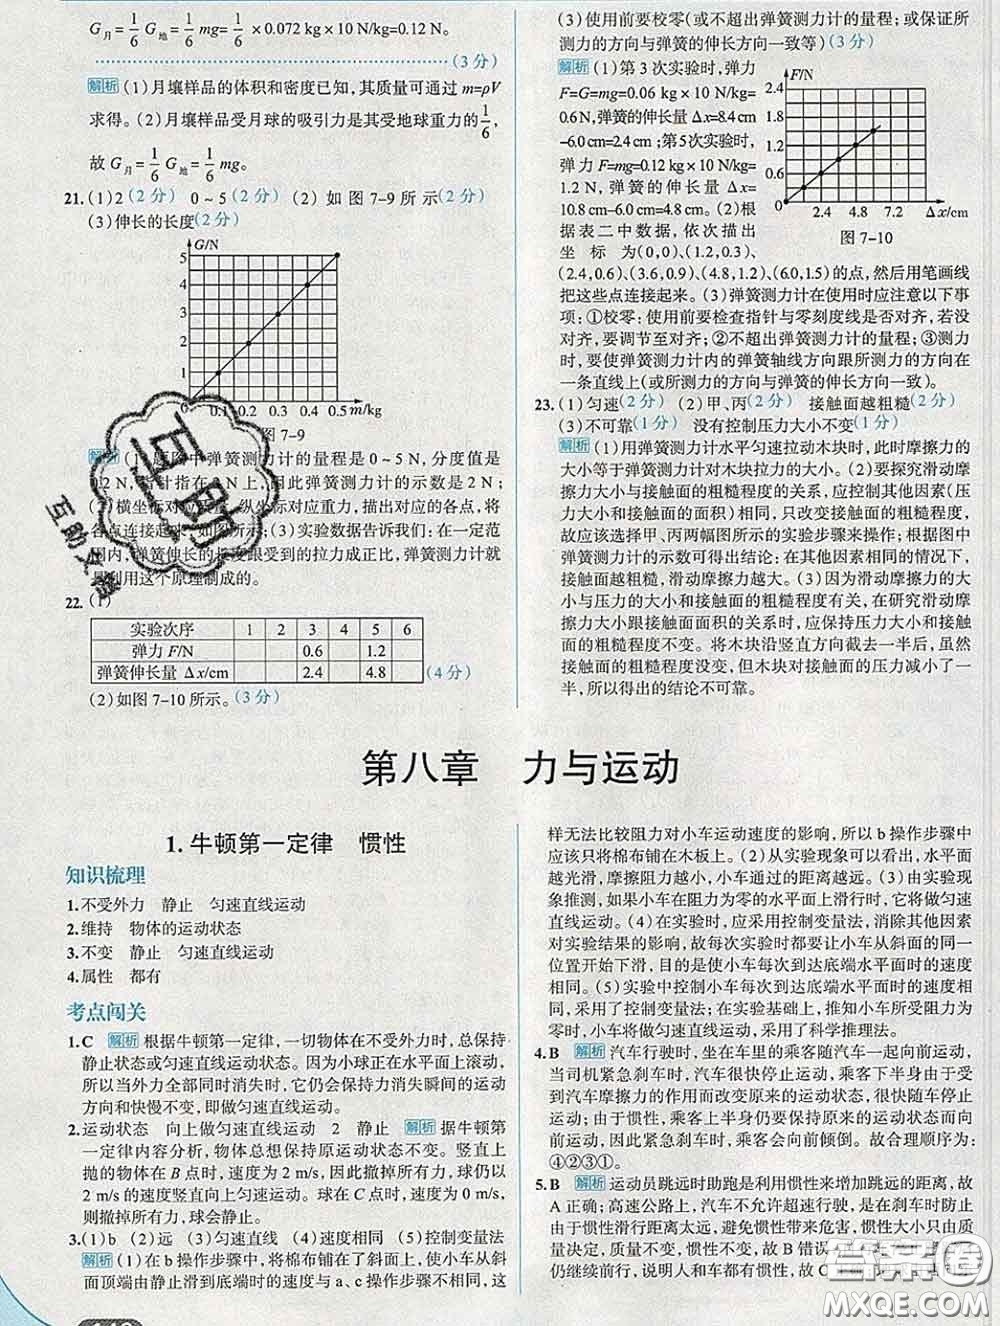 G月=1/6 G地=1/6 mg=1/6×0.072 kg×10 N/kg=0.12 N。
(3分)
解析 (1)月壤样品的体积和密度已知,其质量可通过 m=ρV
求得。(2)月壤样品受月球的吸引力是其受地球重力的1/6,
故 G月=1/6 G地=1/6 mg。
21.(1)2(2分) 0~5(2分) (2)如图7-9所示(2分)
(3)伸长的长度(2分)
G/N
5
4
3
2
1
0 0.1 0.2 0.3 0.4 0.5 m/kg
图7-9
解析 (1)题图中弹簧测力计的量程是0~5 N,分度值是
0.2 N,指针指在2 N上,因此弹簧测力计的示数是2 N;
(2)横坐标对应质量,纵坐标对应重力,描出对应的各点,将
各点连接起来,如图所示;(3)实验数据告诉我们:在一定范
围内,弹簧伸长的长度跟受到的拉力成正比,弹簧测力计就
是利用这个原理制成的。
22.(1)
实验次序 1 2 3 4 5 6
弹力 F/N 0.6 1.2
弹簧伸长量 Δx/cm 2.4 4.8
(4分)
(2)如图7-10所示。(3分)
(3)使用前要校零(或不超出弹簧测力计的量程;或保证所
测力的方向与弹簧的伸长方向一致等)(3分)
解析 (1)第3次实验时,弹力
F=G=mg=0.06 kg×10 N/kg=
0.6N,弹簧的伸长量 Δx=8.4 cm
-6.0 cm=2.4 cm;第5次实验时,
弹力 F=mg=0.12 kg×10 N/kg=
1.2 N,弹簧的伸长量 Δx=
10.8 cm-6.0 cm=4.8 cm。(2)根
据表二中数据,依次描出
坐标为(0,0)、(1.2,0.3)、
F/N
2.4
1.8
1.2
0.6
0 2.4 4.8 7.2 Δx/cm
图7-10
(2.4,0.6)、(3.6,0.9)、(4.8,1.2)、(6.0,1.5)的点,然后用笔画线
把这些点连接起来。(3)弹簧测力计在使用时应注意以下事
项:①校零:使用前要检查指针与零刻度线是否对齐,若没
对齐,要调节至对齐;②不超出弹簧测力计的量程;③测力
时,要使弹簧测力计内的弹簧轴线方向跟所测力的方向在
一条直线上(或所测力的方向与弹簧的伸长方向一致)。
23.(1)匀速(2分) (2)甲、丙(2分) 接触面越粗糙(2分)
(3)不可靠(1分) 没有控制压力大小不变(1分)
解析 (1)用弹簧测力计水平匀速拉动木块时,此时摩擦力的
大小等于弹簧测力计对木块拉力的大小。(2)要探究滑动摩
擦力大小与接触面的粗糙程度的关系,应控制其他因素(压
力大小和接触面面积)相同,只改变接触面的粗糙程度,
故应该选择甲、丙两幅图所示的实验步骤来操作;根据图中
弹簧测力计的示数可得出结论:在其他因素相同的情况下,
接触面越粗糙,滑动摩擦力越大。(3)因为滑动摩擦力的大
小与压力的大小和接触面的粗糙程度有关,在研究滑动摩擦
力大小跟接触面面积的关系时,应保持压力大小和接触面
的粗糙程度不变。将木块沿竖直方向截去一半后,虽然
接触面的粗糙程度没变,但木块对接触面的压力减小了一
半,所以得出的结论不可靠。
第八章 力与运动
1.牛顿第一定律 惯性
知识梳理
1.不受外力 静止 匀速直线运动
2.维持 物体的运动状态
3.不变 静止 匀速直线运动
4.属性 都有
考点闯关
1.C 解析 根据牛顿第一定律,一切物体在不受外力时,总保持
静止状态或匀速直线运动状态。因为小球正在水平面上滚动,
所以当外力全部同时消失时,它仍会保持力消失瞬间的运动
方向和快慢不变,即做匀速直线运动。
2.运动状态 向上做匀速直线运动 2 静止 解析 据牛顿第
一定律内容分析,物体总想保持原运动状态不变。竖直上
抛的物体在 B 点时,速度为2 m/s,因此撤掉所有力,球仍以
2 m/s的速度竖直向上匀速运动。球在 C 点时,速度为0 m/s,
则撤掉所有力,球会静止。
3.(1)b (2)远 (3)匀速直线 (4)速度相同 (5)控制变量法
解析 (1)在b操作步骤中,将棉布铺在了斜面上,使小车从斜
面顶端由静止滑到底端时的速度与a、c操作步骤不相同,这
样无法比较阻力对小车运动速度的影响,所以b操作步骤中
应该只将棉布铺在木板上。(2)从实验现象可以看出,水平面
越光滑,摩擦阻力越小,小车通过的距离越远。(3)由实验现
象推测,如果小车在阻力为零的水平面上滑行时,它将做匀速
直线运动。(4)在实验时,应采用控制变量法,消除其他因素
对实验结果的影响,故每次实验时都要让小车从斜面的同一
位置开始下滑,目的是使小车每次到达底端水平面时的速度
相同。(5)实验中控制小车每次到达底端水平面时的速度相
同,采用了控制变量法;在实验基础上,推知小车所受阻力为
零时,小车将做匀速直线运动,采用了科学推理法。
4.B 解析 汽车行驶时,坐在车里的乘客随汽车一起向前运动,
当司机紧急刹车时,汽车很快停止运动。乘客下半身由于受
到汽车摩擦力的作用而改变原来的运动状态,很快随车停止
运动;由于惯性,乘客上半身仍要保持原来的运动状态而向
前运动,因此紧急刹车时,乘客会向前倾倒。故合理顺序为:
④②③①。
5.B 解析 运动员跳远时助跑是利用惯性来增加跳远的距离,故
A正确;高速公路上,汽车不允许超速行驶,是在刹车时防止
由于惯性滑行距离太远,避免惯性带来危害,惯性大小只与
质量不变,惯性不变,故B错误
仍继续前行,说明人和车都有惯性,故C
互助
互助文档
答案圈
MXQE.COM